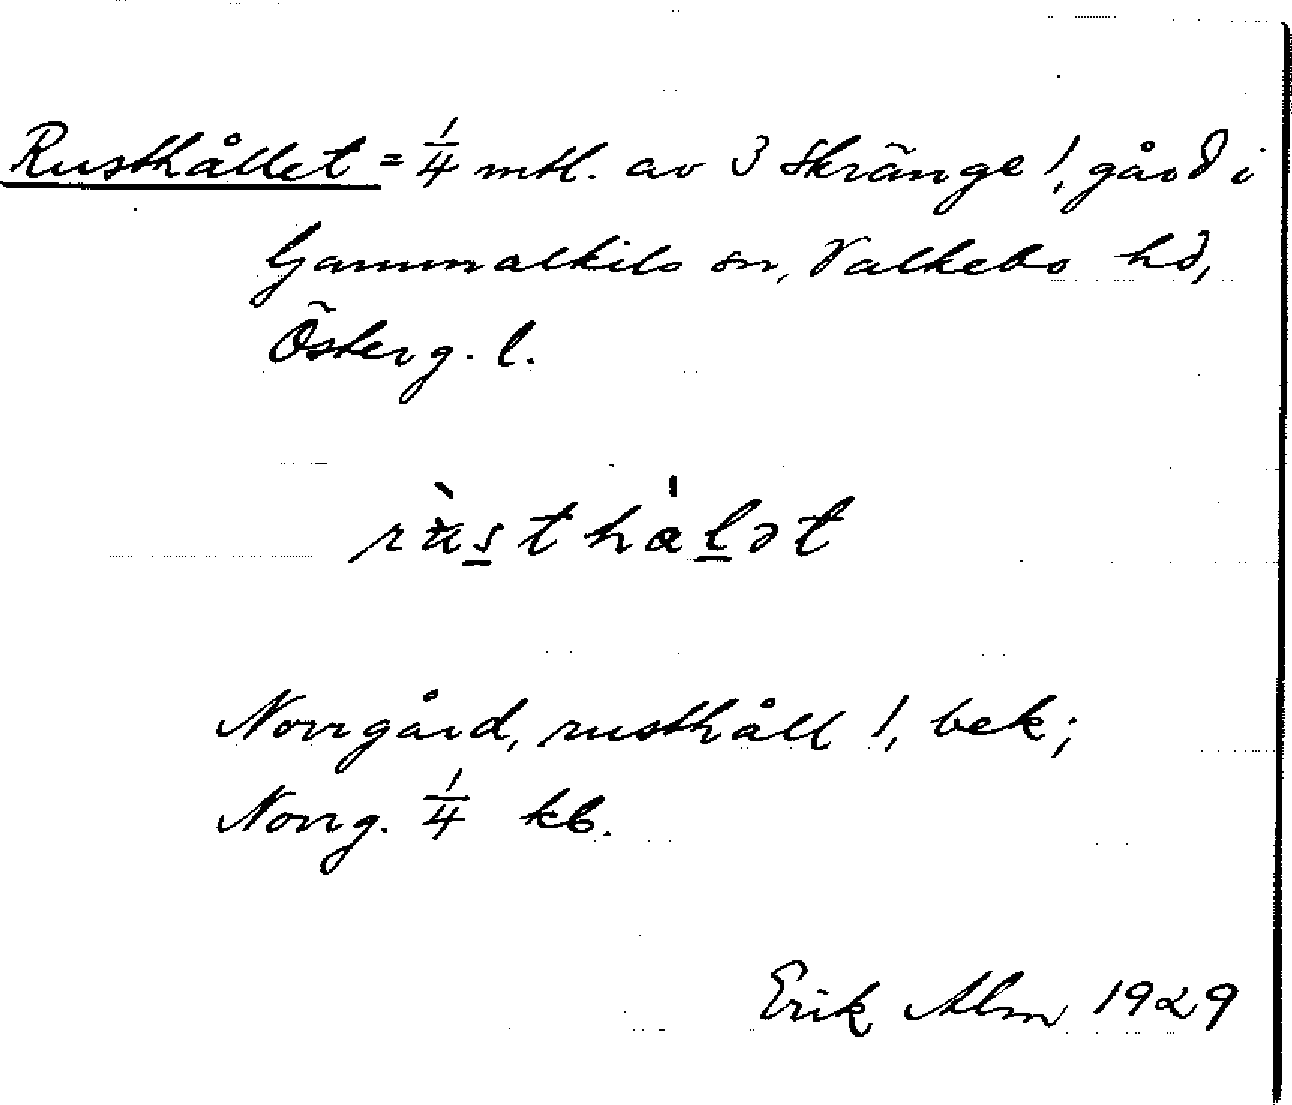 Rusthållet = 1/4 mtl. av 3 Skränge 1, gård i
Gammalkils sn, Valkebo hd,
Österg. l.
rùsthàlət
Norrgård, rusthåll 1, bek;
Norrg. 1/4 kb.
Erik Alm 1929